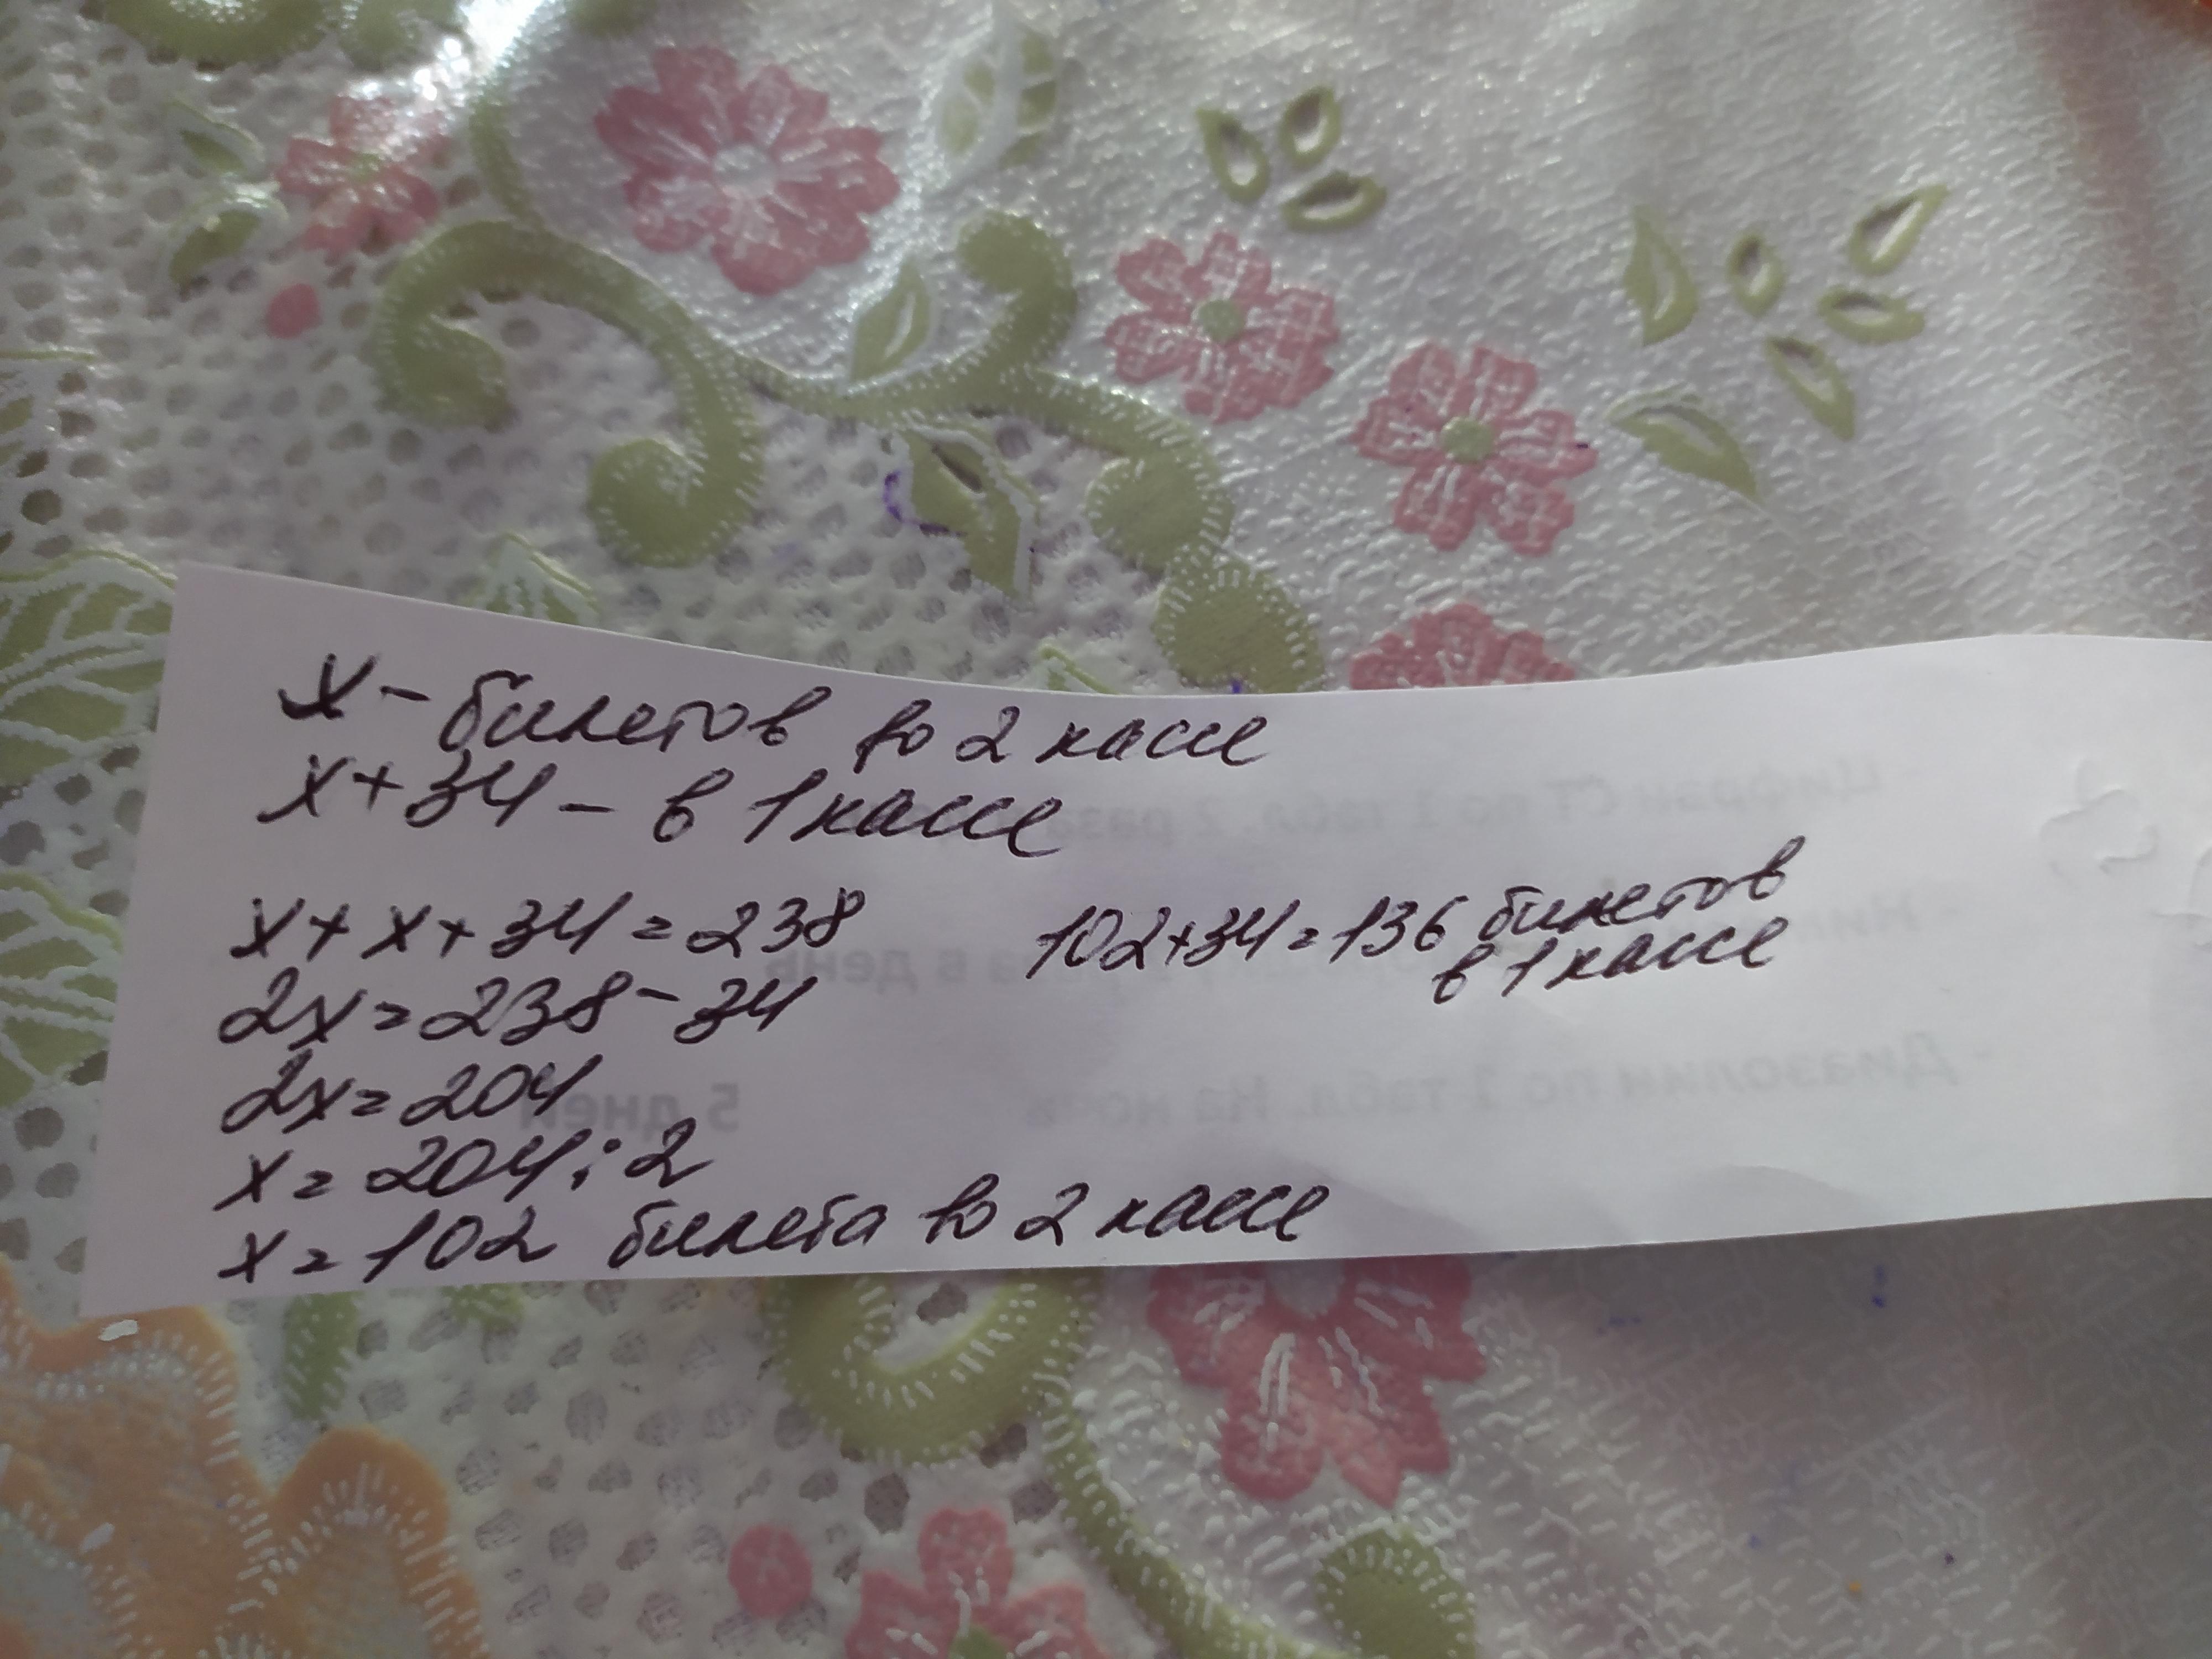 х - билетов во 2 кассе
х + 34 - в 1 кассе
х + х + 34 = 238
2х = 238 - 34
2х = 204
х = 204 : 2
х = 102 билета во 2 кассе
102 + 34 = 136 билетов
в 1 кассе